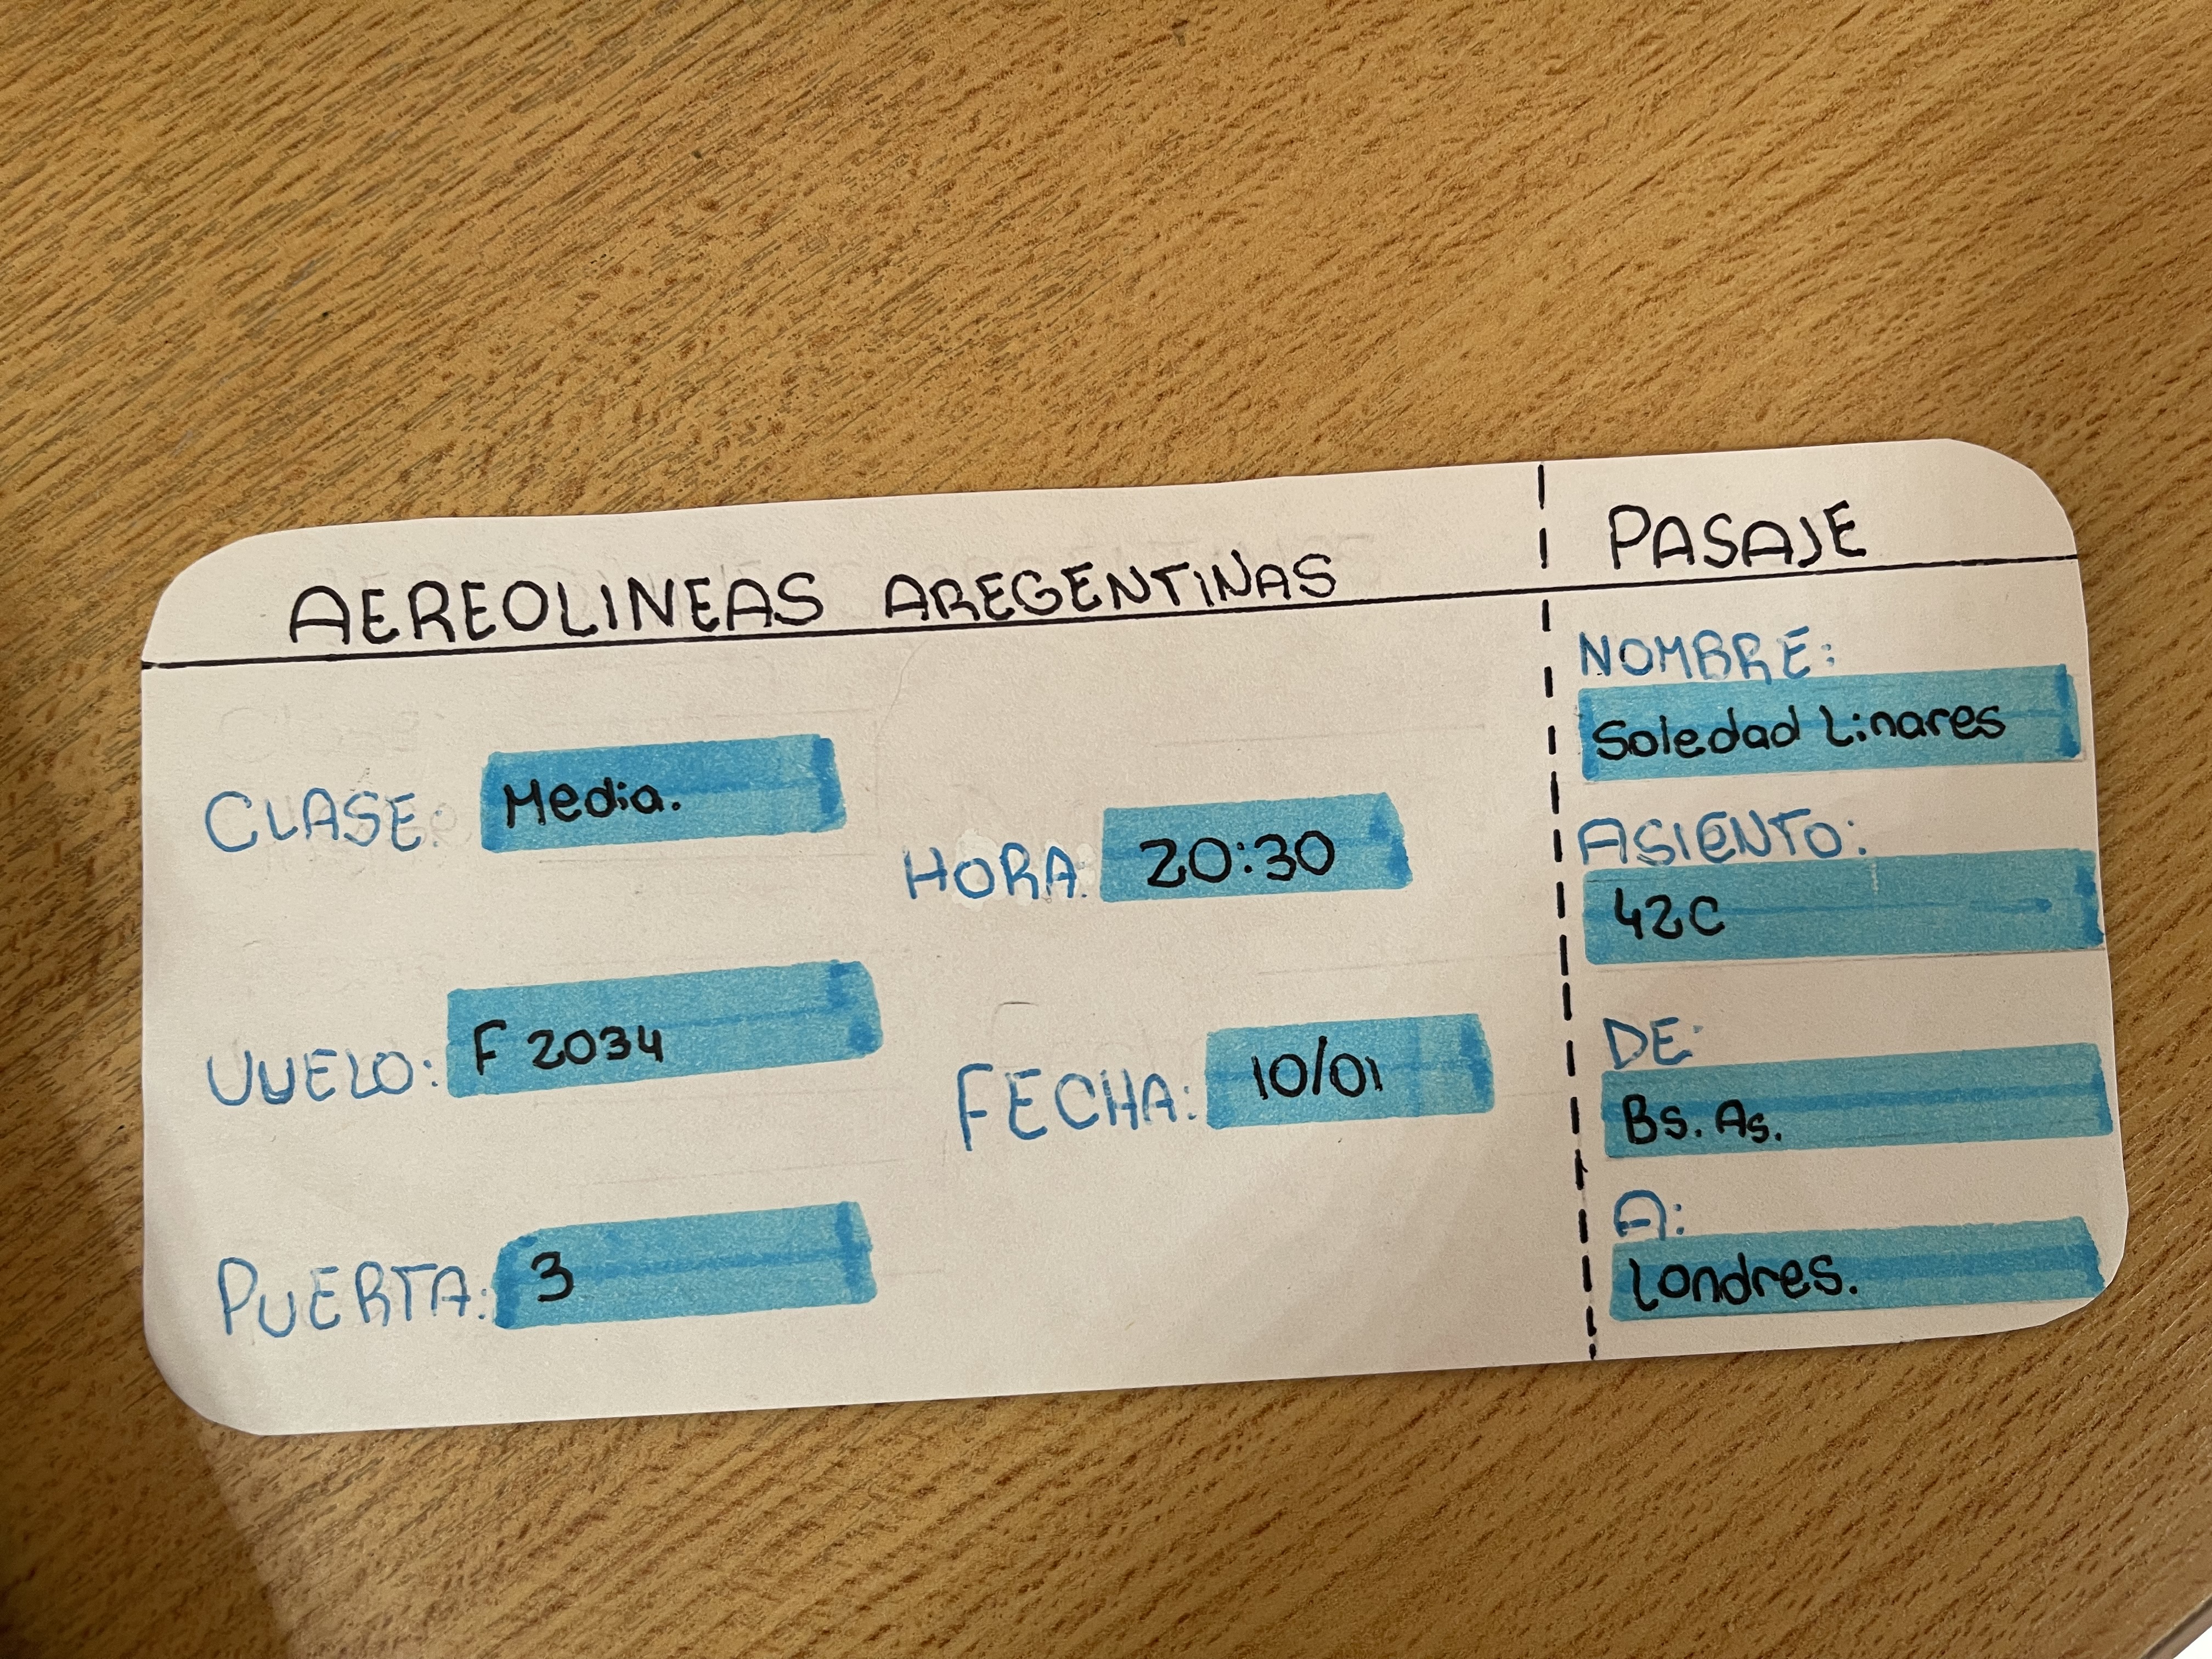 AEREOLINEAS AREGENTINAS
CLASE: Media.
HORA: 20:30
VUELO: F 2034
FECHA: 10/01
PUERTA: 3
PASAJE
NOMBRE:
Soledad Linares
ASIENTO:
42C
DE:
Bs. As.
A:
Londres.